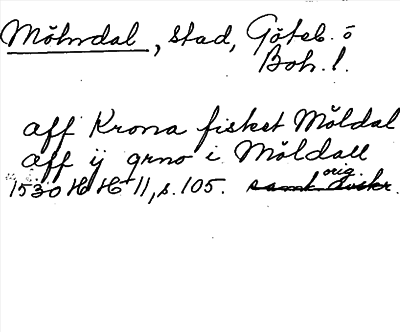 Mölndal, stad, Göteb. o
Boh. l.
aff Krona fisket Möldal
aff ij qrno i Möldall
1530 HH 11, s. 105. samt avskr.
orig.